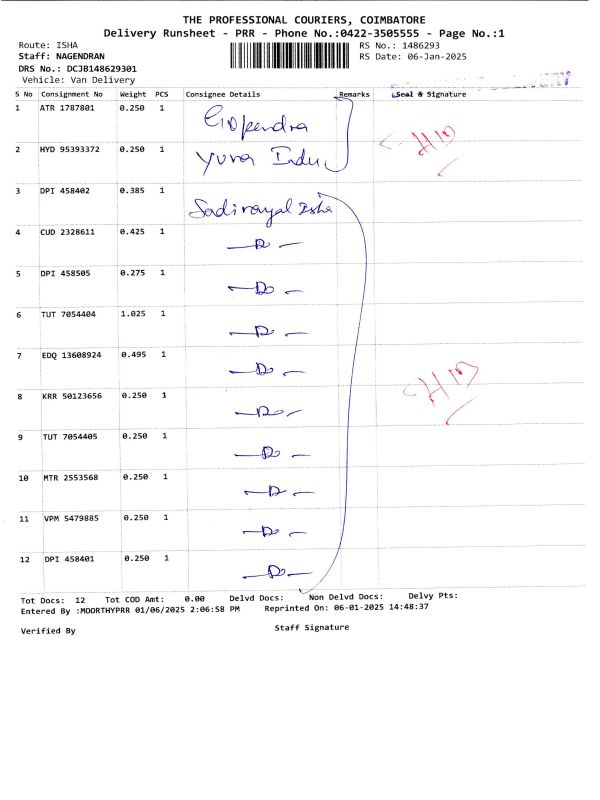 THE PROFESSIONAL COURIERS, COIMBATORE
Delivery Runsheet - PRR - Phone No.:0422-3505555 - Page No.:1
Route: ISHA RS No.: 1486293
Staff: NAGENDRAN RS Date: 06-Jan-2025
DRS No.: DCJB148629301
Vehicle: Van Delivery
S No Consignment No Weight PCS Consignee Details Remarks Seal & Signature
1 ATR 1787801 0.250 1 Gopendra
2 HYD 95393372 0.250 1 Yuva Indu
3 DPI 458402 0.385 1 Sadirayal Isha
4 CUD 2328611 0.425 1 — Do —
5 DPI 458505 0.275 1 — Do —
6 TUT 7054404 1.025 1 — Do —
7 EDQ 13608924 0.495 1 — Do —
8 KRR 50123656 0.250 1 — Do —
9 TUT 7054405 0.250 1 — Do —
10 MTR 2553568 0.250 1 — Do —
11 VPM 5479885 0.250 1 — Do —
12 DPI 458401 0.250 1 — Do —
Tot Docs: 12 Tot COD Amt: 0.00 Delvd Docs: Non Delvd Docs: Delvy Pts:
Entered By :MOORTHYPRR 01/06/2025 2:06:58 PM Reprinted On: 06-01-2025 14:48:37
Verified By Staff Signature